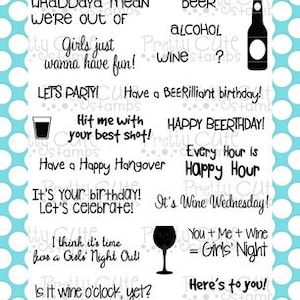 WHADDAYA MEAN
WE'RE OUT OF
BEER
ALCOHOL
WINE ?
Girls just
wanna have fun!
LET'S PARTY!
Have a BEERilliant birthday!
Hit me with
your best shot!
HAPPY BEERTHDAY!
Have a Happy Hangover
Every Hour is
Happy Hour
It's your birthday!
Let's celebrate!
It's Wine Wednesday!
I think it's time
for a Girls' Night Out!
You + Me + Wine
= Girls' Night
Is it wine o'clock, yet?
Here's to you!
Pretty Cute
Stamps